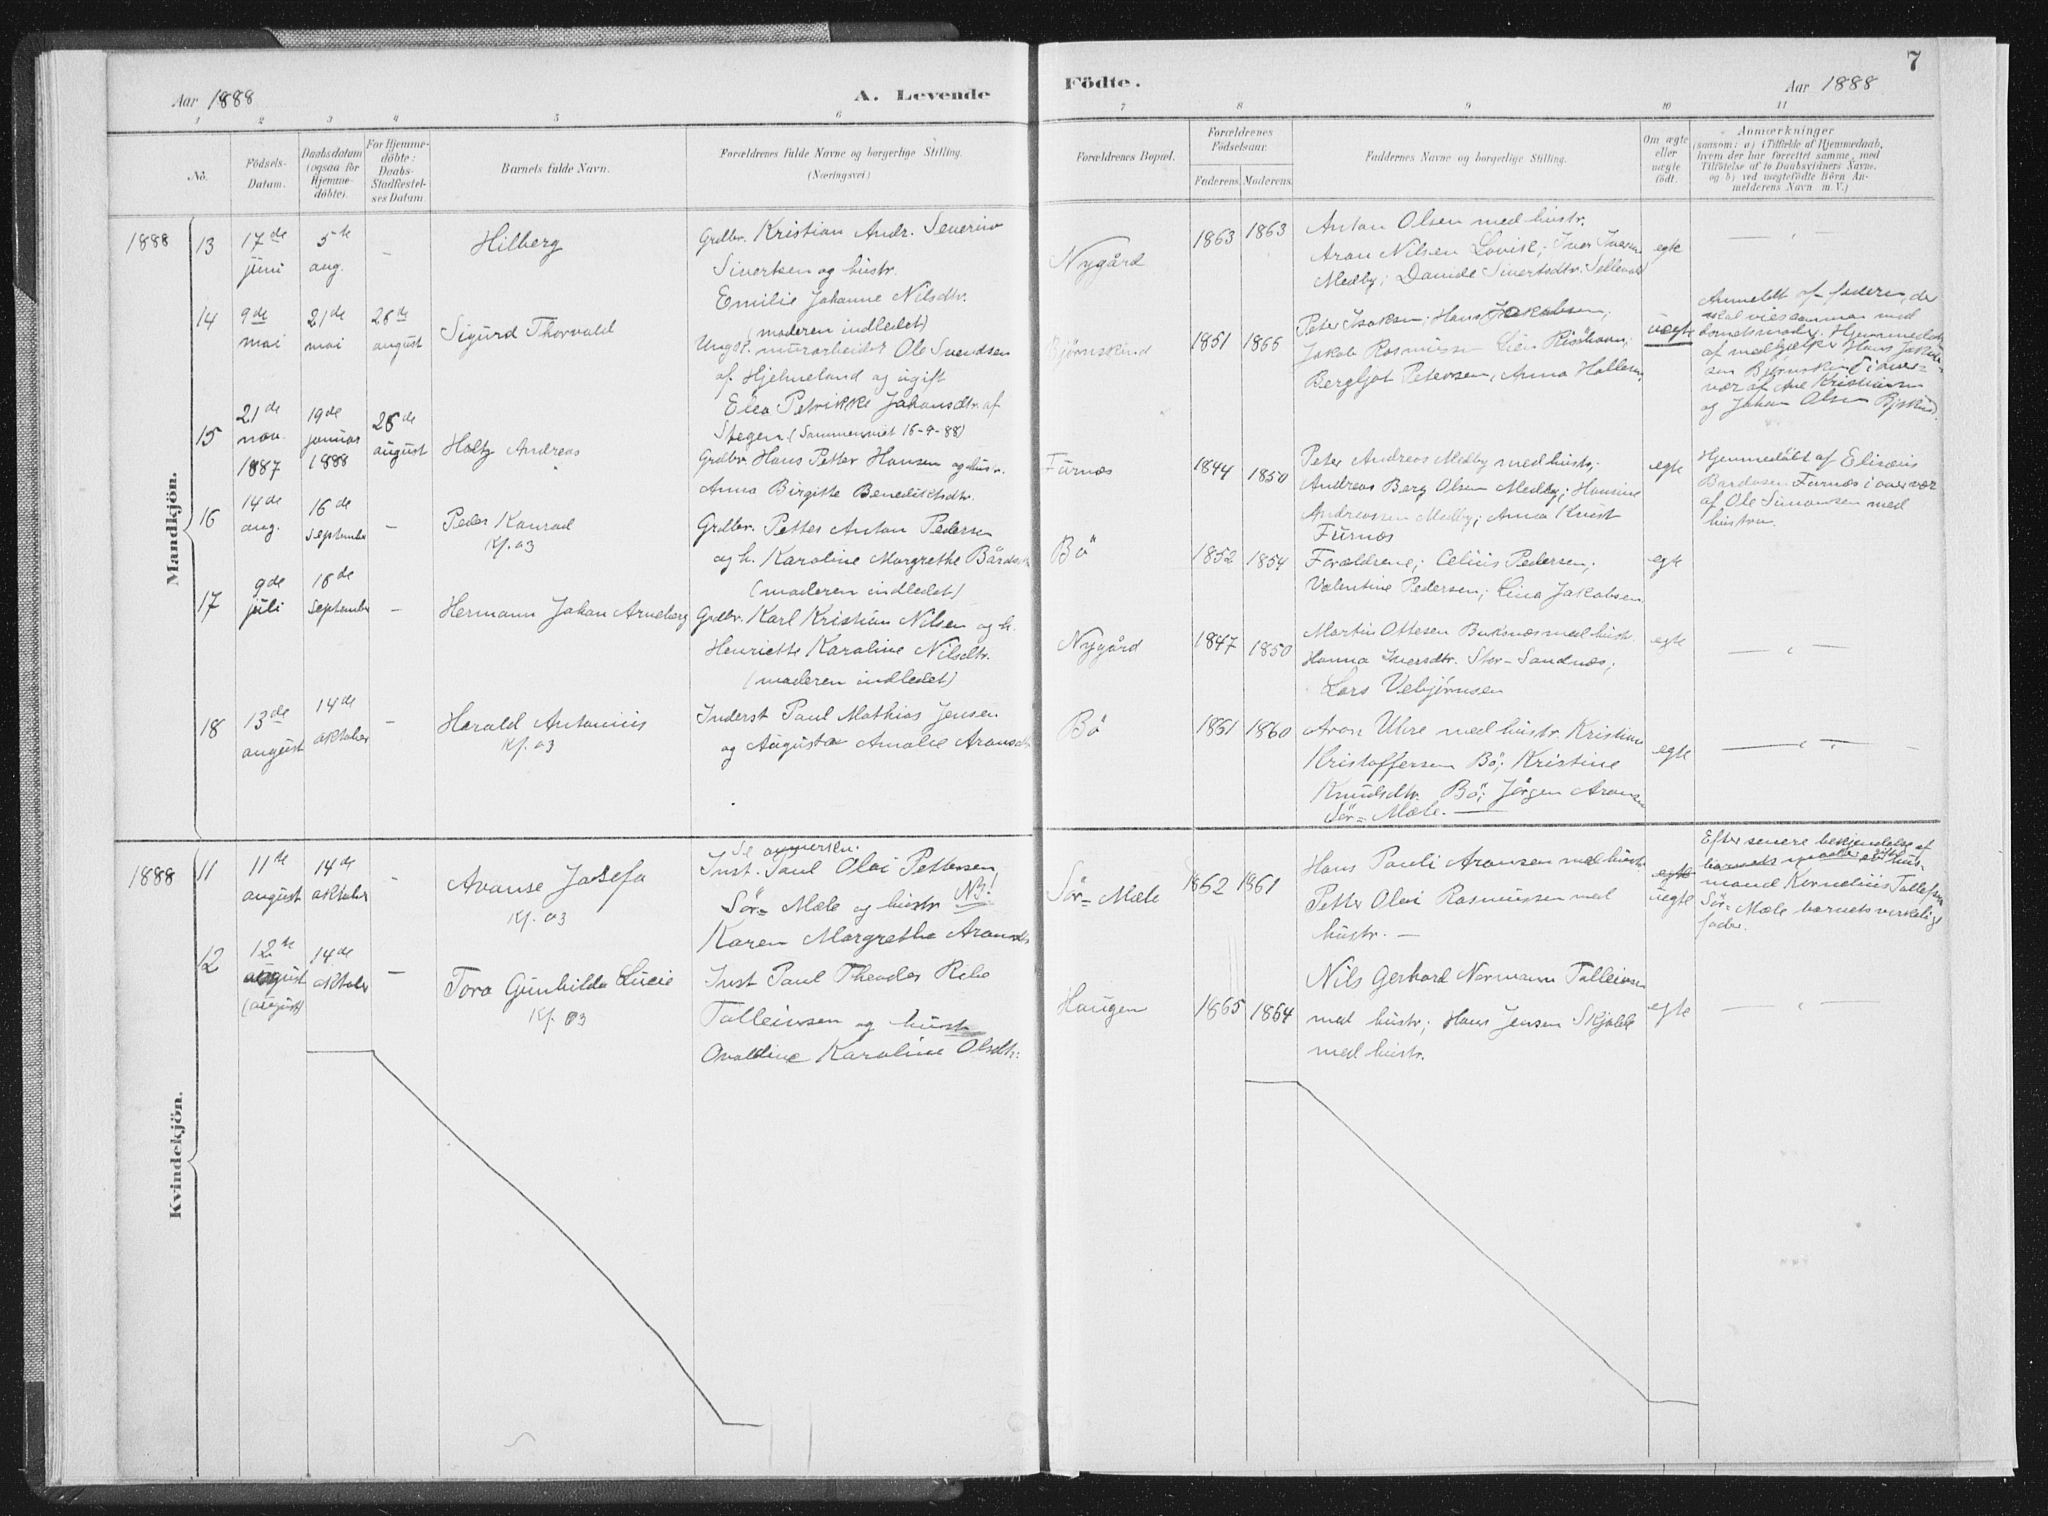 7
Aar 1888
A. Levende
Födte.
Aar 1888
1 2 3 4 5 6 7 8 9 10 11
Nô.
Födsels-Datum.
Daabsdatum (ogsaa för Hjemme-döbte).
For Hjemme-döbte: Daabs-Stadfæstel-ses Datum
Barnets fulde Navn.
Forældrenes fulde Navne og borgerlige Stilling.
(Næringsvei)
Forældrenes Bopæl.
Forældrenes Födselsaar.
Faderens. Moderens.
Faddernes Navne og borgerlige Stilling.
Om ægte eller uægte födt.
Anmærkninger
(saasom: a) i Tilfælde af Hjemmedaab,
hvem der har forrettet samme, med
Tilföielse af to Daabsvidners Navne.
og b) ved uægtefödte Börn An-
melderens Navn m. V.)
Mandkjön.
1888 13 17de juni 5te aug. - Hilberg
Grdbr. Kristian Andr. Severin
Sivertsen og hustr.
Emilie Johanne Nilsdtr.
(moderen indledet)
Nygård 1863 1863
Anton Olsen med hustr.
Aron Nilsen Lovise; Iver Iversen
Medby; Daniel Sivertsdtr.
egte — " —
14 9de mai 21de mai 26de august Sigurd Thorvald
Ungk. murarbeider Ole Svendsen
af Hjelmeland og ugift
Elea Petrikke Johansdtr. af
Stegen (Sammenviet 16-9-88)
Bjørnskind 1851 1866
Peter Isaksen; Hans Jakobsen;
Jakob Rasmussen
Bergljot Petersen, Anna
uegte
Anmeldt af faderen, der
skal vies sammen med
barnets moder. Hjemmedöbt
af medhjelper Hans Jakob-
sen Bjørnskind i over-
vær af Kristiansen
og Johan Olsen Bjskind.
15 21de nov. 1887 19de januar 1888 26de august Holtz Andreas
Grdbr. Hans Petter Hansen og hustr.
Anna Birgitte Benediktsdtr.
Furnæs 1844 1850
Peter Andreas Medby med hustr;
Andreas Berg Olsen Medby; Hansine
Andreassen Medby; Anna Kvist
Furnæs
egte
Hjemmedöbt af Elisæus
Bardosen Furnæs i overvær
af Ole Simonsen med
hustru.
16 14de aug. 16de September - Peder Konrad
Kf. 03
Grdbr. Petter Anton Pedersen
og h. Karoline Margrethe Bårdsdtr.
(moderen indledet)
Bö 1852 1854
Forældrene; Celius Pedersen;
Valentine Pedersen; Lina Jakobsen.
egte
17 9de juli 16de September - Hermann Johan Arneberg
Grdbr. Karl Kristian Nilsen og h.
Henriette Karoline Nilsdtr.
(moderen indledet)
Nygård 1847 1850
Martin Ottesen Buksnæs med hustr.
Hanna Iversdtr. Stor-Sandnæs;
Lars Vebjørnsen
egte — " —
18 13de august 14de oktober - Harald Antonius
Kf. 03
Inderst Paul Mathias Jensen
og Augusta Amalie Aronsdtr
Bö 1861 1860
Aron Uhre med hustr. Kristian
Kristoffersen Bö; Kristine
Knudsdtr. Bö; Jörgen Aronsen
Sör=Mæle.
egte — " —
Kvindekjön.
1888 11 11te august 14de oktober - Avanse Josefa
Kf. 03
Se anmerkn.
Inst. Paul Olai Pettersen
Sör=Mæle og hustr. NB!
Karen Margrethe Aronsdtr
Sör=Mæle 1862 1861
Hans Pauli Aronsen med hustr
Petter Olai Rasmussen med
hustr. —
egte
uegte
Efter senere bekjendelse af
barnets moder er gift hus-
mand Kornelius Tollefsen
Sör=Mæle barnets virkelige
fader.
12 12te august (august) 14de oktober - Tora Gunhilda Lucie
Kf. 03
Inst Paul Theodor Ribe
Tolleivsen og hustr
Ovaldine Karoline Olsdtr.
Haugen 1865 1864
Nils Gerhard Normann Tolleivsen
med hustr; Hans Jensen Skjelde
med hustr.
egte — " —